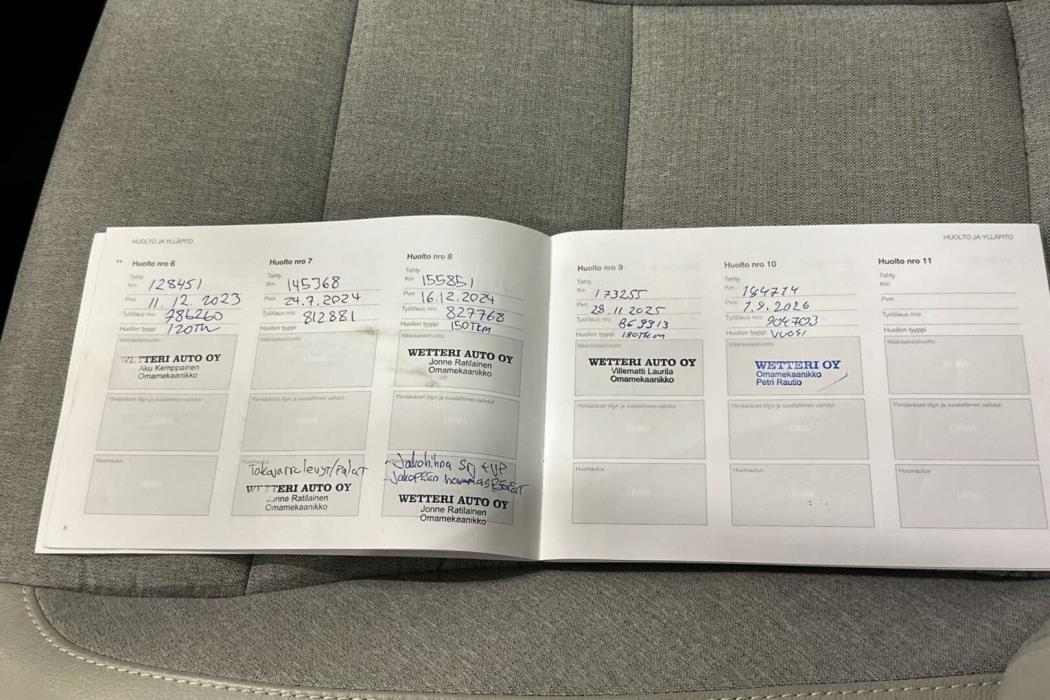 HUOLTO JA YLLÄPITO
Huolto nro 6
Tehty
Km 128451
Pvm 11.12.2023
Työtilaus nro: 786260
Huollon tyyppi 120Tkm
Määräaikaishuolto
WETTERI AUTO OY
Aku Kemppainen
Omamekaanikko
Ylimääräiset öljyn ja suodattimen vaihdot
LEIMA
Huomautus
LEIMA
8
Huolto nro 7
Tehty
Km 145368
Pvm 24.7.2024
Työtilaus nro: 812881
Huollon tyyppi
Määräaikaishuolto
LEIMA
Ylimääräiset öljyn ja suodattimen vaihdot
LEIMA
Huomautus
Takajarrulevyt/palat
WETTERI AUTO OY
Jonne Ratilainen
Omamekaanikko
Huolto nro 8
Tehty
Km 155851
Pvm 16.12.2024
Työtilaus nro: 827768
Huollon tyyppi 150Tkm
Määräaikaishuolto
WETTERI AUTO OY
Jonne Ratilainen
Omamekaanikko
Ylimääräiset öljyn ja suodattimen vaihdot
LEIMA
-Jakohihna Srj + VP
-Jakopään
WETTERI AUTO OY
Jonne Ratilainen
Omamekaanikko
HUOLTO JA YLLÄPITO
Huolto nro 9
Tehty
Km 173255
Pvm 28.11.2025
Työtilaus nro: 869313
Huollon tyyppi 180Tkm
Määräaikaishuolto
WETTERI AUTO OY
Villematti Laurila
Omamekaanikko
Ylimääräiset öljyn ja suodattimen vaihdot
LEIMA
Huomautus
LEIMA
Huolto nro 10
Tehty
Km
Pvm
Työtilaus nro: 904703
Huollon tyyppi VUOSI
Määräaikaishuolto
WETTERI OY
Omamekaanikko
Petri Rautio
Ylimääräiset öljyn ja suodattimen vaihdot
LEIMA
Huomautus
LEIMA
Huolto nro 11
Tehty
Km
Pvm
Työtilaus nro:
Huollon tyyppi
Määräaikaishuolto
LEIMA
Ylimääräiset öljyn ja suodattimen vaihdot
LEIMA
Huomautus
LEIMA